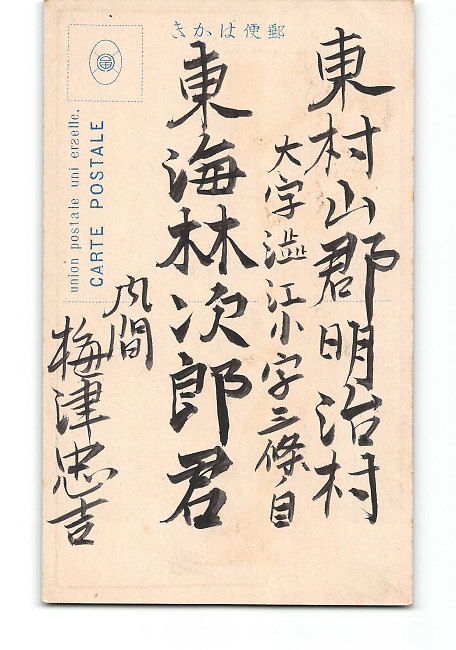 郵便はかき
東村山郡明治村
大字澁江小字三條目
東海林次郎君
風間
梅津忠吉
union postale uni erselle.
CARTE POSTALE